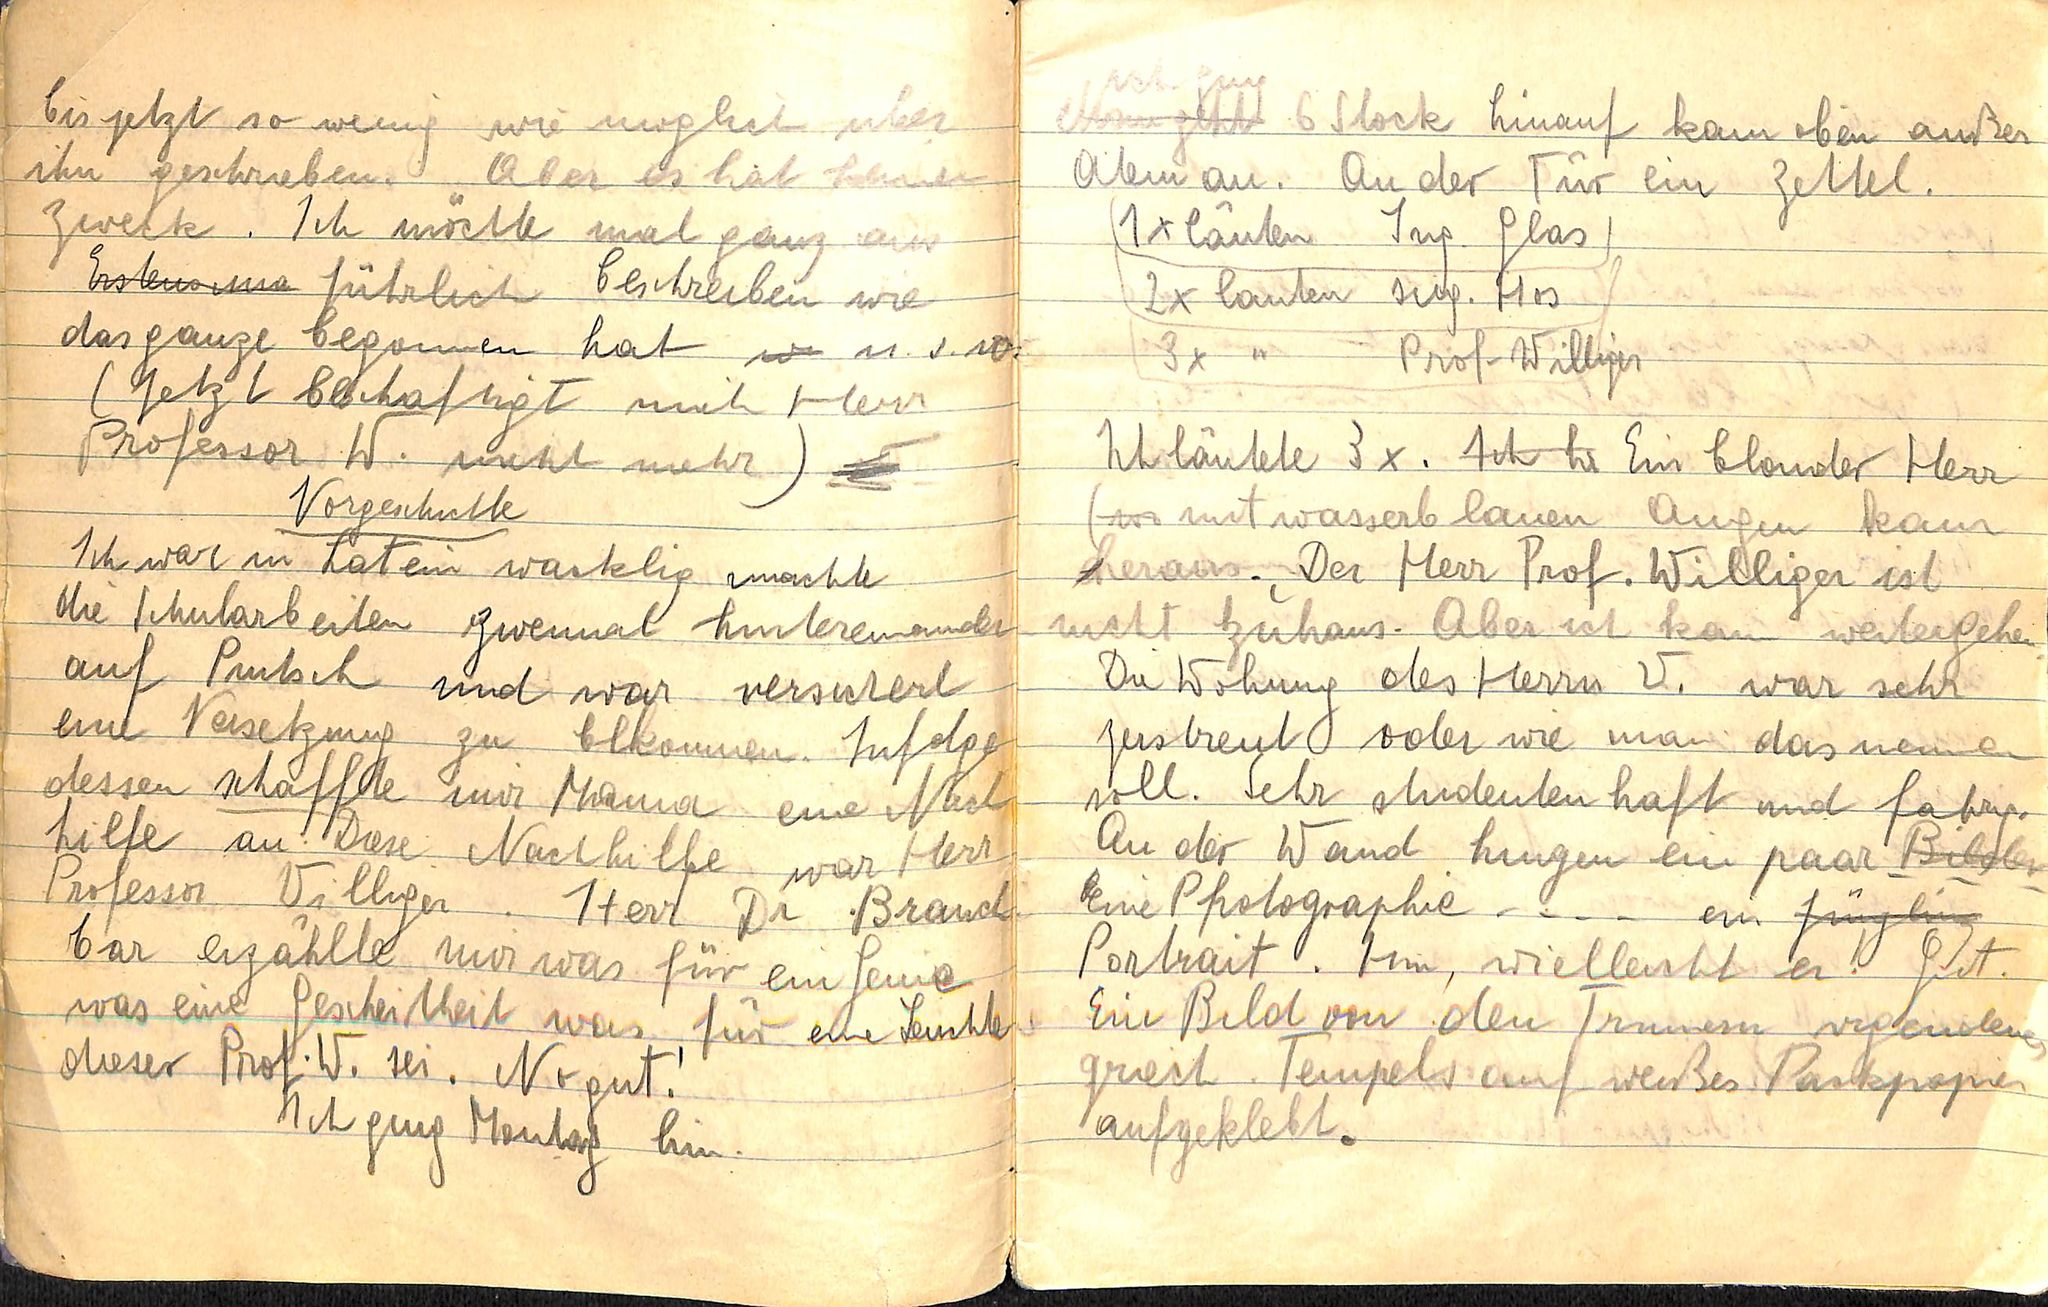 bis jetzt so wenig wie moglich uber
ihn geschrieben. Aber es hat keinen
Zweck. Ich möchte mal ganz aus
führlich beschreiben wie
das ganze begonnen hat u.s.w.
(Jetzt beschaftigt mich Herr
Professor W. nicht mehr)
Vorgeschichte
Ich war in Latein wacklig machte
die Schularbeiten zweimal hintereinander
auf Pintsch und war versichert
eine Versetzung zu bekommen. Infolge
dessen schaffte mir Mama eine Nach
hilfe an. Diese Nachhilfe war Herr
Professor Villiger. Herr Dr. Brand
bar erzählte mir was für ein Genie
was eine Gescheitheit was für eine Leuchte
dieser Prof. W. sei. No gut!
Ich ging Montag hin.
ich ging
6 Stock hinauf kam oben außer
Atem an. An der Tür ein Zettel.
1x läuten Ing. Glas
2x lauten Ing. Hos
3x " Prof. Williger
Ich läutete 3x. Ein blonder Herr
(mit wasserblauen Augen kam
heraus. Der Herr Prof. Williger ist
nicht zuhaus. Aber ich kann weitergehen
Die Wohung des Herrn V. war sehr
zerstreut oder wie man das nennen
soll. Sehr studentenhaft und fahrig.
An der Wand hingen ein paar Bilder
Eine Photographie - - - - ein
Portrait. Hm, wielleicht er! Gut.
Ein Bild von den Trümern irgendeines
griech. Tempels auf weißes Packpapier
aufgeklebt.